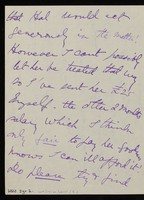 that Hal would act
generously in the matter.
However I can't possibly
let her be treated that way
so I've sent her this
myself, the other 2 months
salary which I think
only fair to pay her. God
knows I can ill afford it
Do please try & find